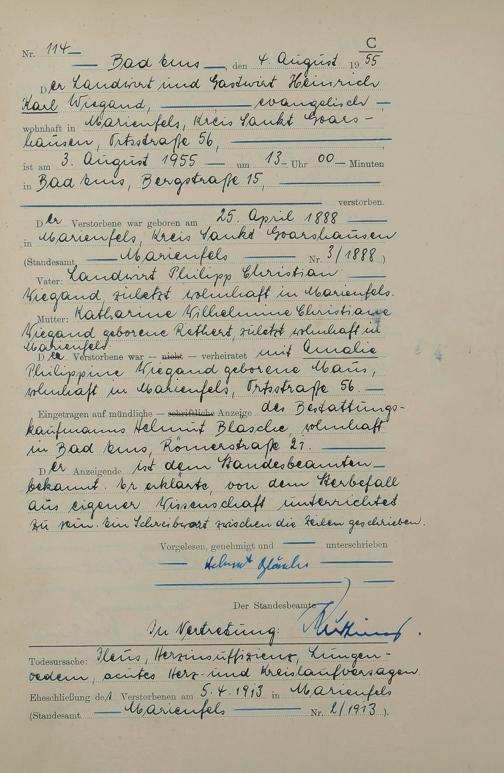 C
Nr. 114
Bad Ems, den 4. August 1955
Der Landwirt und Gastwirt Heinrich
Karl Wiegand, evangelisch
wohnhaft in Marienfels, Kreis Sankt Goars-
hausen, Ortsstraße 56,
ist am 3. August 1955 um 13 Uhr 00 Minuten
in Bad Ems, Bergstraße 15,
verstorben.
Der Verstorbene war geboren am 25. April 1888
in Marienfels, Kreis Sankt Goarshausen
(Standesamt Marienfels Nr. 3/1888.)
Vater: Landwirt Philipp Christian
Wiegand, zuletzt wohnhaft in Marienfels.
Mutter: Katharine Wilhelmine Christiane
Wiegand geborene Rethert, zuletzt wohnhaft in
Marienfels
Der Verstorbene war — nicht — verheiratet mit Amalie
Philippine Wiegand geborene Maus,
wohnhaft in Marienfels, Ortsstraße 56.
Eingetragen auf mündliche — schriftliche Anzeige des Bestattungs-
kaufmanns Helmut Blasche wohnhaft
in Bad Ems, Römerstraße 21.
Der Anzeigende ist dem Standesbeamten
bekannt. Er erklärte, von dem Sterbefall
aus eigener Wissenschaft unterrichtet
zu sein. Ein Schreibwort zwischen die Zeilen geschrieben.
Vorgelesen, genehmigt und unterschrieben
Helmut
Der Standesbeamte
In Vertretung:
Todesursache: Ileus, Herzinsuffizienz, Lungen-
oedem, acutes Herz- und Kreislaufversagen
Eheschließung des Verstorbenen am 5.4.1913 in Marienfels
(Standesamt Marienfels Nr. 2/1913).